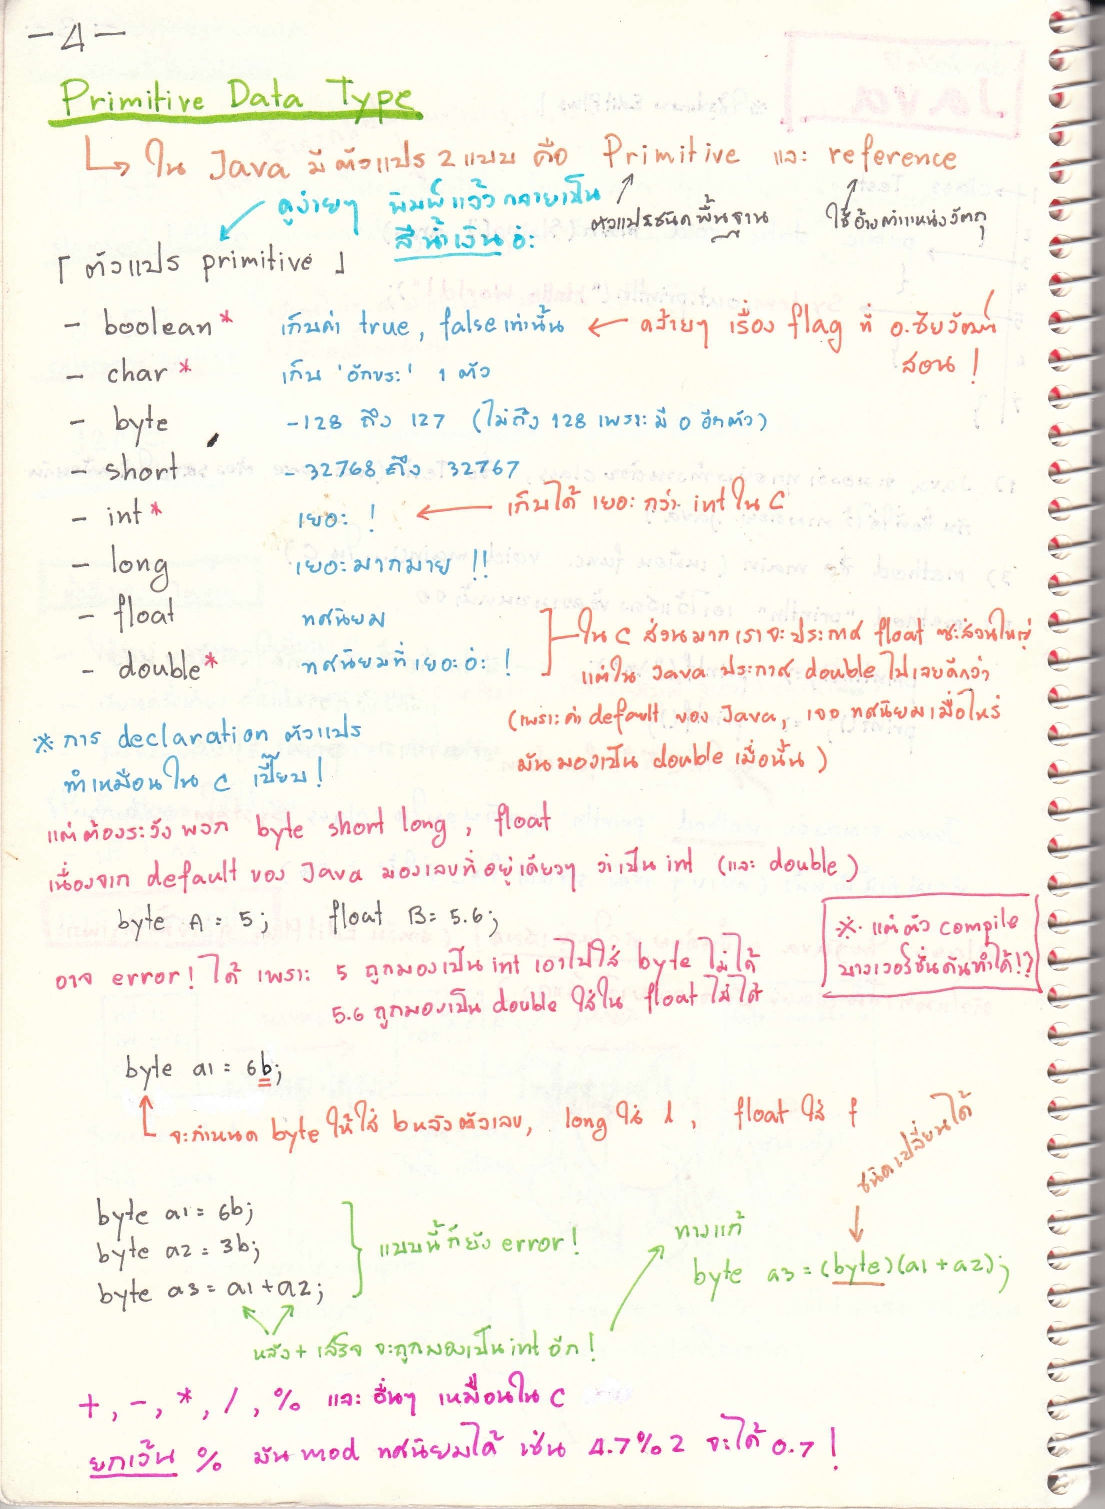 -4-
Primitive Data Type
↳ ใน Java มีตัวแปร 2 แบบ คือ Primitive และ reference
ตัวแปรชนิดพื้นฐาน
ใช้อ้างตำแหน่งวัตถุ
ดูง่ายๆ พิมพ์แล้วกลายเป็น
สีน้ำเงินอ่ะ
「ตัวแปร primitive」
- boolean* เก็บค่า true, false เท่านั้น ← คล้ายๆ เรื่อง flag ที่ อ.ชัยวัฒน์
สอน!
- char* เก็บ 'อักขระ' 1 ตัว
- byte -128 ถึง 127 (ไม่ถึง 128 เพราะมี 0 อีกตัว)
- short -32768 ถึง 32767
- int* เยอะ! ← เก็บได้เยอะกว่า int ใน C
- long เยอะมากมาย!!
- float ทศนิยม
- double* ทศนิยมที่เยอะอ่ะ!
ใน C ส่วนมากเราจะประกาศ float ซะส่วนใหญ่
แต่ใน Java ประกาศ double ไปเลยดีกว่า
(เพราะค่า default ของ Java, เจอทศนิยมเมื่อไหร่
มันมองเป็น double เมื่อนั้น)
※ การ declaration ตัวแปร
ทำเหมือนใน C เปี๊ยบ!
แต่ต้องระวังพวก byte short long, float
เนื่องจาก default ของ Java มองเลขที่อยู่เดี่ยวๆ ว่าเป็น int (และ double)
byte A = 5; float B = 5.6;
อาจ error! ได้ เพราะ 5 ถูกมองเป็น int เอาไปใส่ byte ไม่ได้
5.6 ถูกมองเป็น double ใส่ใน float ไม่ได้
※ แต่ตัว compile
บางเวอร์ชั่นดันทำได้!?
byte a1 = 6b;
จะกำหนด byte ให้ใส่ b หลังตัวเลข, long ใส่ l, float ใส่ f
byte a1 = 6b;
byte a2 = 3b;
byte a3 = a1+a2;
แบบนี้ก็ยัง error!
หลัง + เสร็จ จะถูกมองเป็น int อีก!
ทางแก้
ชนิดเปลี่ยนได้
byte a3 = (byte)(a1+a2);
+, -, *, /, % และอื่นๆ เหมือนใน C
ยกเว้น % มัน mod ทศนิยมได้ เช่น 4.7%2 จะได้ 0.7!